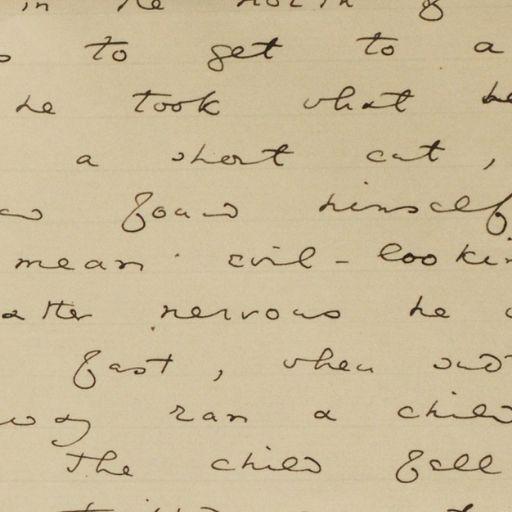 in the north of
to get to a
he took what he
a short cut,
found himself
mean evil-lookin
atter nervous he
fast, when sud
way ran a child
The child fell